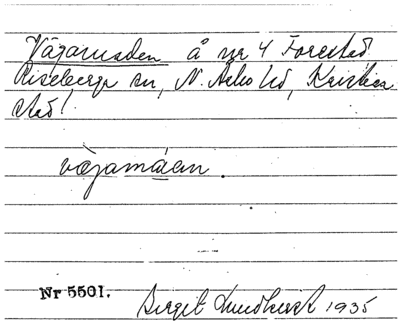 Vägamaden å nr 4 Forestad
Riseberga sn, N. Åsbo hd, Kristian
stad l.
vägamáen.
Nr 5501.
Birgit Lundkvist 1935